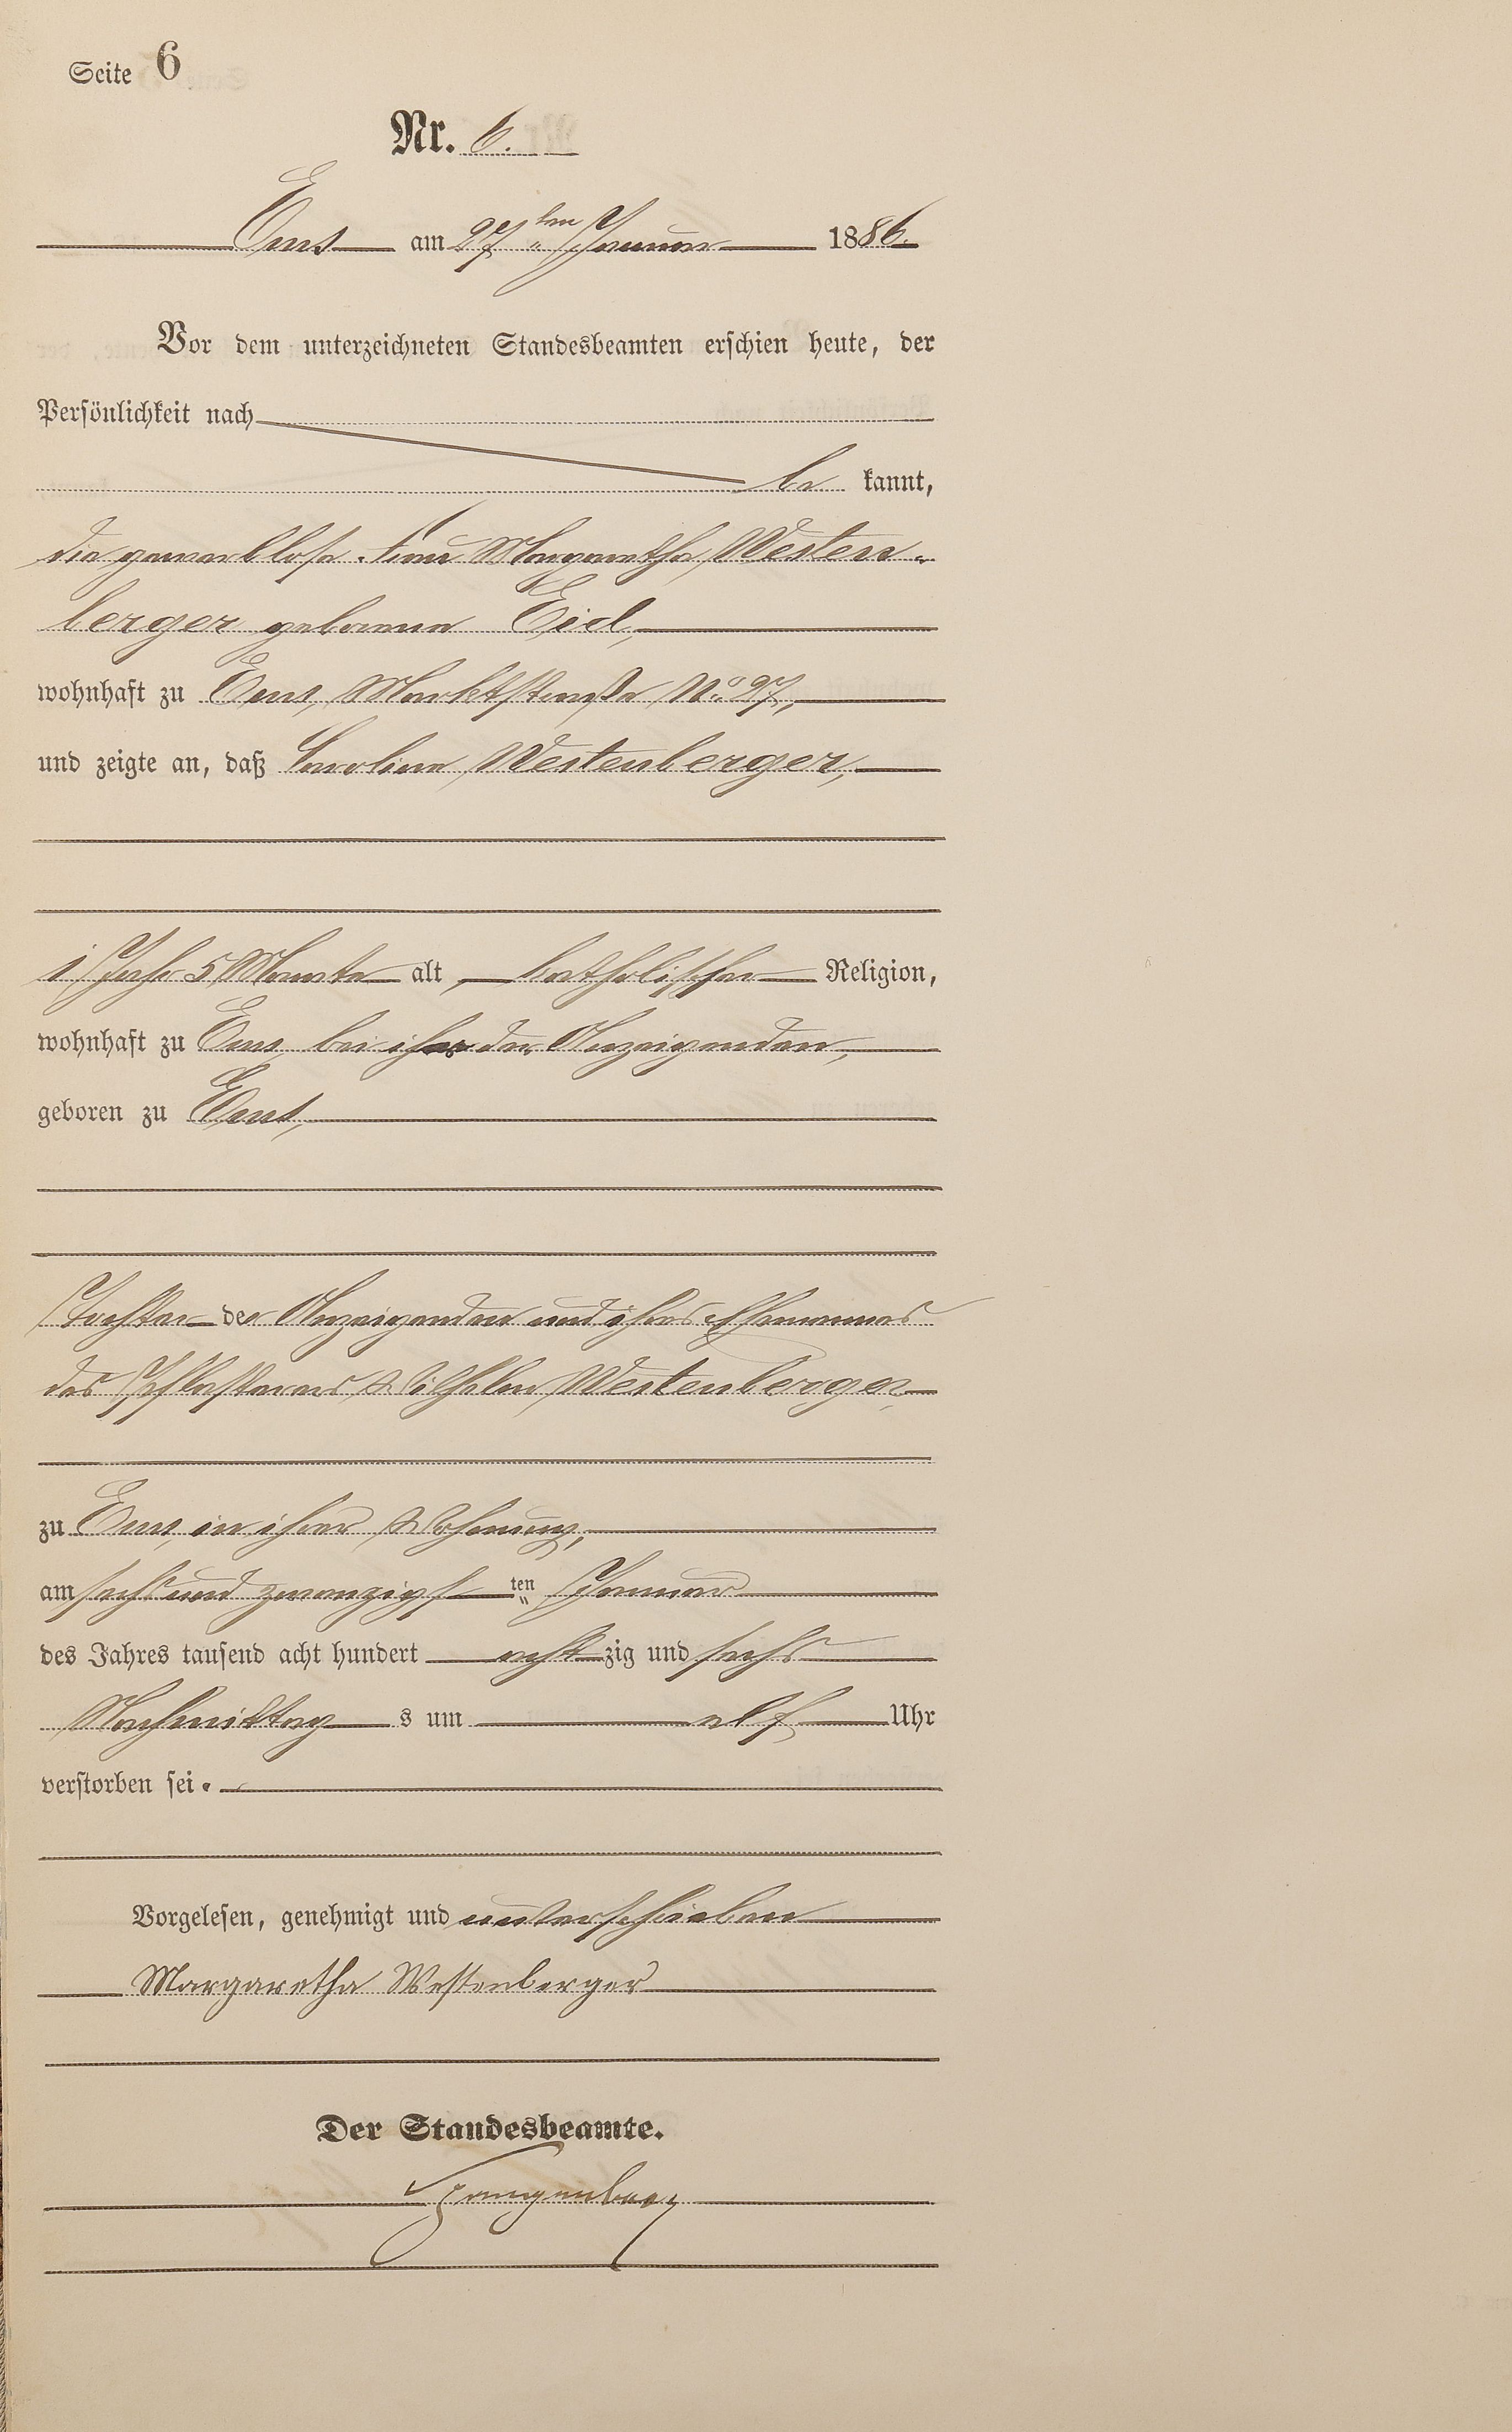 Seite 6
Nr. 6.
Ems am 27ten Januar 1886.
Vor dem unterzeichneten Standesbeamten erschien heute, der
Persönlichkeit nach
be kannt,
die gewerblose Frau Margaretha Westen-
berger geborene Eid,
wohnhaft zu Ems, Marktstraße No 27,
und zeigte an, daß Caroline Westenberger,
1 Jahr 5 Monate alt, katholischer Religion,
wohnhaft zu Ems bei ihr der Anzeigenden,
geboren zu Ems,
Tochter der Anzeigenden und ihres Ehemannes
des Pflasterers Wilhelm Westenberger
zu Ems, in ihrer Wohnung,
am sechsundzwanzigsten Januar
des Jahres tausend acht hundert achtzig und sechs
Nachmittags um elf Uhr
verstorben sei.
Vorgelesen, genehmigt und unterschrieben
Margaretha Westenberger
Der Standesbeamte.
Spangenberg